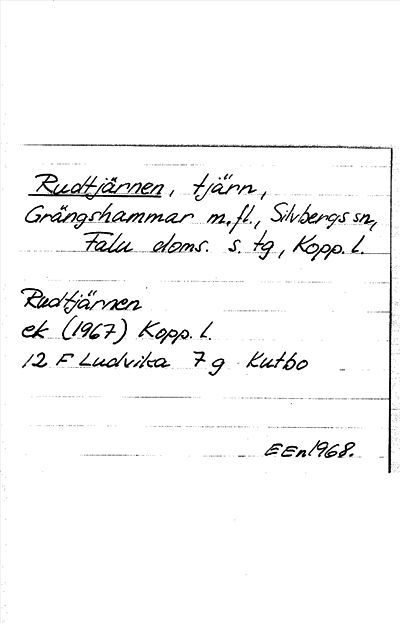 Rudtjärnen, tjärn,
Grängshammar m.fl., Silvbergs sn,
Falu doms. s. tg, Kopp. l.
Rudtjärnen
ek (1967) Kopp. l.
12 F Ludvika 7 g Kutbo
EEn1968.